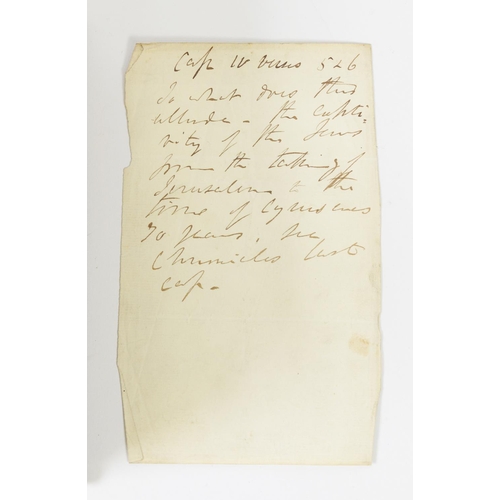 Cap IV verses 5 & 6
To what does this
allude - the capti-
vity of the Jews
from the taking of
Jerusalem to the
time of Cyrus was
70 years, see
Chronicles last
cap.